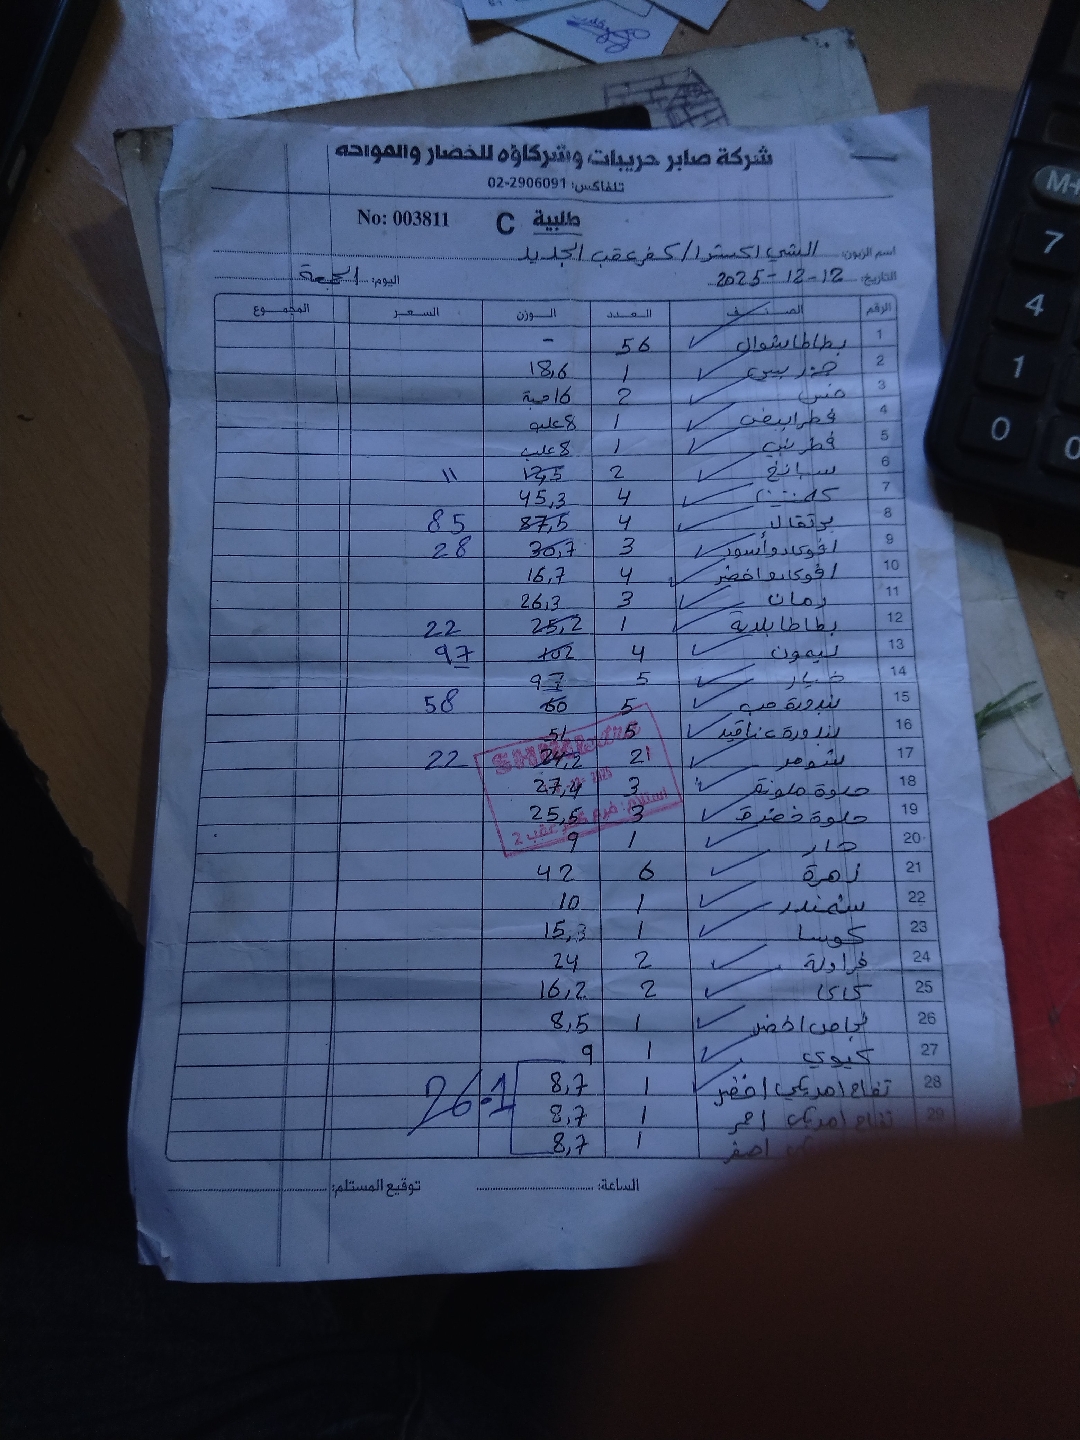 شركة صابر حريبات وشركاؤه للخضار والفواكه
تلفاكس: 02-2906091
No: 003811 C طلبية
اسم الزبون: الشني اكسترا / كفر عقب الجديد
التاريخ: 12-12-2025 اليوم: الجمعة
الرقم الصنف العدد الوزن السعر المجموع
1 بطاطا شوال 56 -
2 جزر بيبي 1 18,6
3 خس 2 16 حبة
4 فطر ابيض 1 8 علب
5 فطر بني 1 8 علب
6 سبانخ 2 12,5 11
7 كلمنتينا 4 45,3
8 برتقال 4 87,5 85
9 افوكادو أسود 3 30,7 28
10 افوكادو اخضر 4 16,7
11 رمان 3 26,3
12 بطاطا بلدية 1 25,2 22
13 ليمون 4 102 97
14 خيار 5 97
15 بندورة حب 5 60 58
16 بندورة عناقيد 5 51
17 شومر 21 24,2 22
18 حلوة ملونة 3 27,4
19 حلوة خضرة 3 25,5
20 حار 1 9
21 زهرة 6 42
22 شمندر 1 10
23 كوسا 1 15,3
24 فراولة 2 24
25 كاكا 2 16,2
26 اجاص اخضر 1 8,5
27 كيوي 1 9
28 تفاح امريكي اخضر 1 8,7 26.1
29 تفاح امريكي احمر 1 8,7
اصفر 1 8,7
استلام: فرع كفر عقب 2
الساعة: توقيع المستلم:
M+
7
4
1
0
0